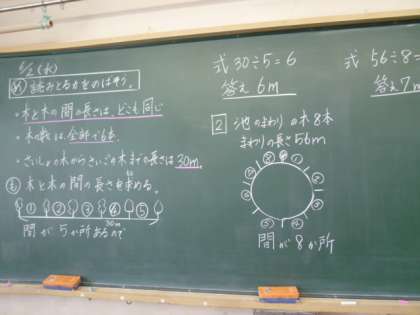 6/2(水)
め 読みとる力をのばそう。
・木と木の間の長さは、どこも同じ
・木の数は、全部で6本
・さいしょの木からさいごの木までの長さは30m。
も 木と木の間の長さを求める。
① ② ③ ④ ⑤
30m
間が5か所あるので
式 30÷5=6
答え 6m
2 池のまわりの木8本
まわりの長さ56m
間が8か所
式 56÷8=
答え 7m